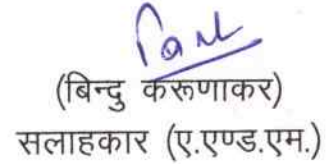 (बिन्दु करूणाकर)
सलाहकार (ए.एण्ड.एम.)